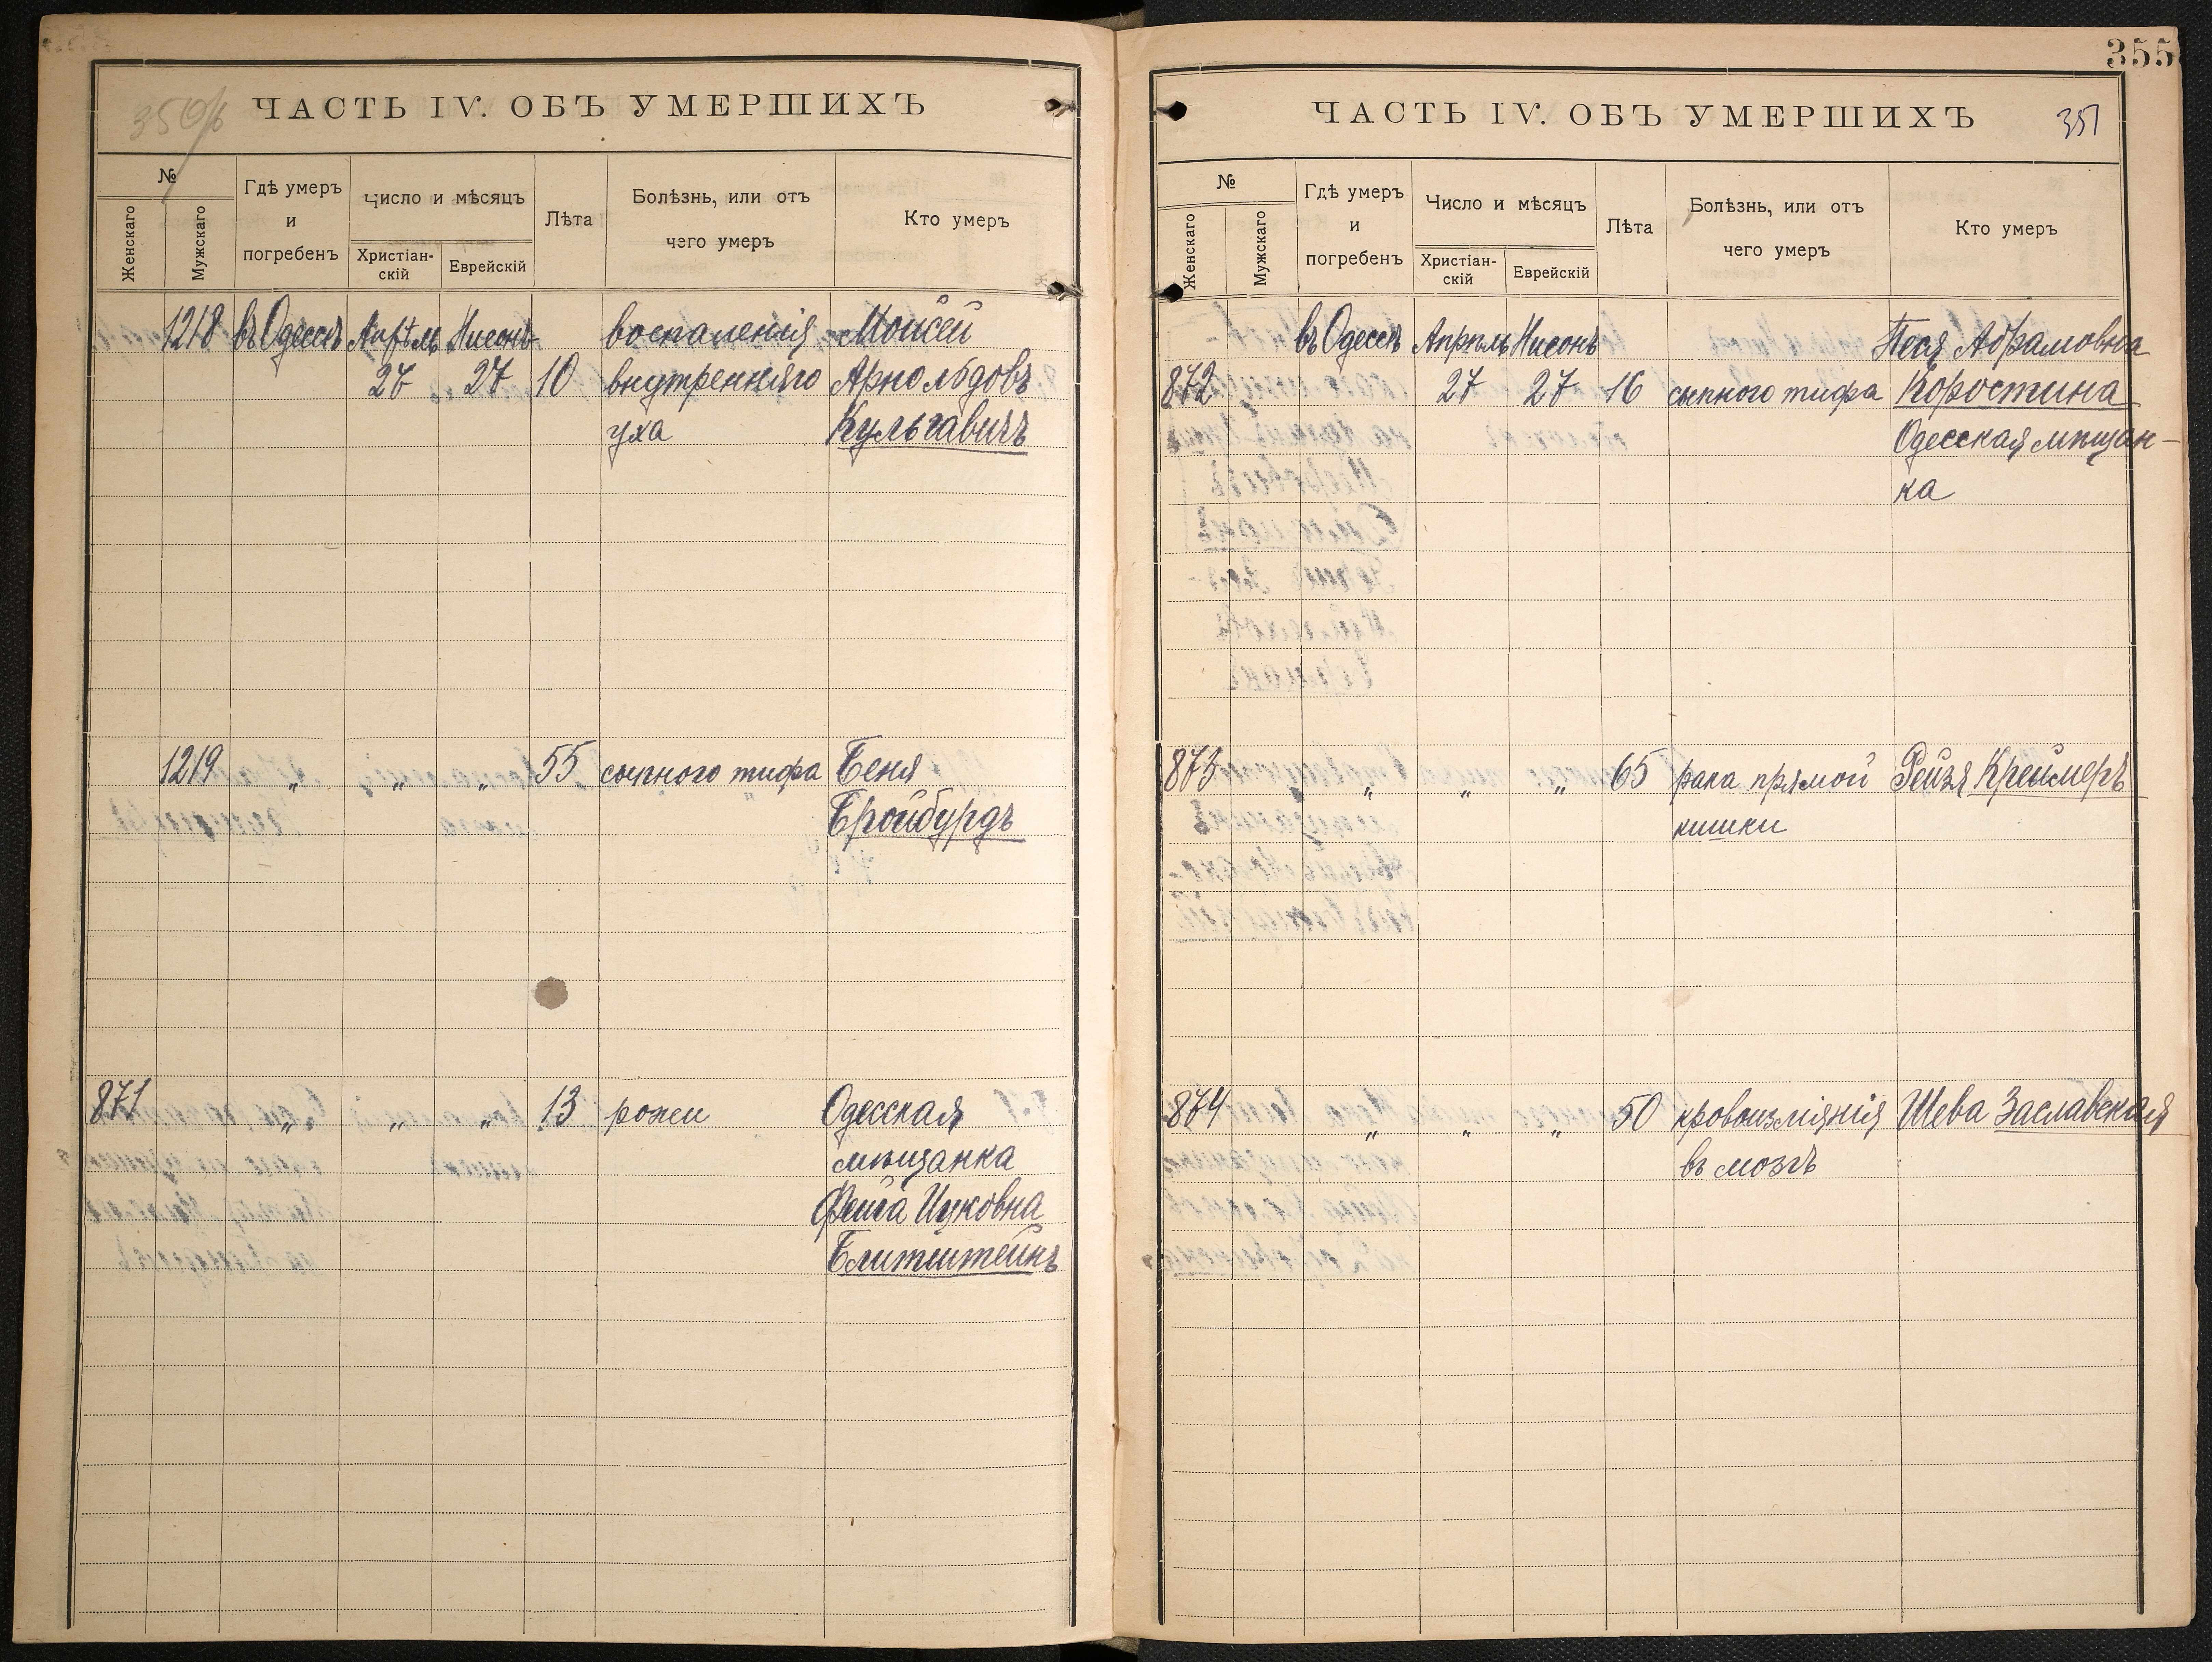 ЧАСТЬ IV. ОБЪ УМЕРШИХЪ
№
Женскаго
Мужскаго
Гдѣ умеръ
и
погребенъ
Число и мѣсяцъ
Христіан-
скій
Еврейскій
Лѣта
Болѣзнь, или отъ
чего умеръ
Кто умеръ
1218 въ Одессѣ Апрѣль Нисонъ воспаленія Моисей
27 27 10 внутренняго Арнольдовъ
уха Кульгавичъ
1219 „ „ „ 55 сыпного тифа Беня
Бройбурдъ
871 „ „ „ 13 рожи Одесская
мѣщанка
Фейга Ицковна
Блитштейнъ
355
ЧАСТЬ IV. ОБЪ УМЕРШИХЪ
357
№
Женскаго
Мужскаго
Гдѣ умеръ
и
погребенъ
Число и мѣсяцъ
Христіан-
скій
Еврейскій
Лѣта
Болѣзнь, или отъ
чего умеръ
Кто умеръ
въ Одессѣ Апрѣль Нисонъ Песя Абрамовна
872 27 27 16 сыпного тифа Коростина
Одесская мѣщан-
ка
873 „ „ „ 65 рака прямой Рейзя Креймеръ
кишки
874 „ „ „ 50 кровоизліянія Шева Заславская
въ мозгъ